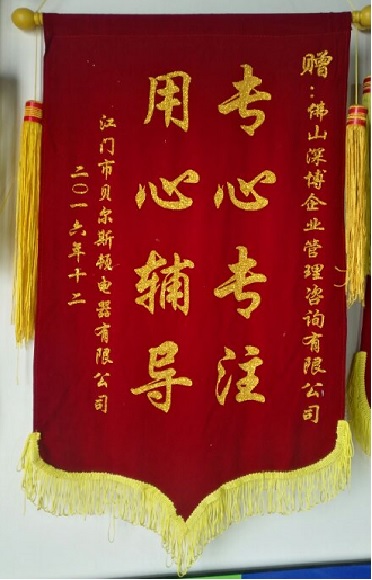 赠：佛山深博企业管理咨询有限公司
专心专注
用心辅导
江门市贝尔斯顿电器有限公司
二〇一六年十二